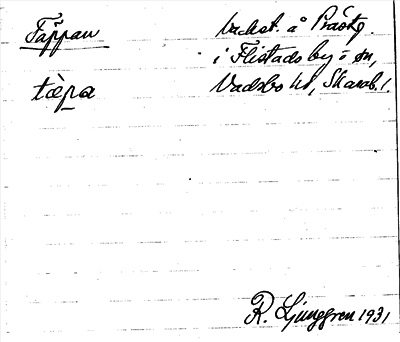 Täppan
Vretst. å Prästg.
i Flistads by o sn,
tæpa
Vadsbo hd, Skarab. l.
R. Ljunggren 1931